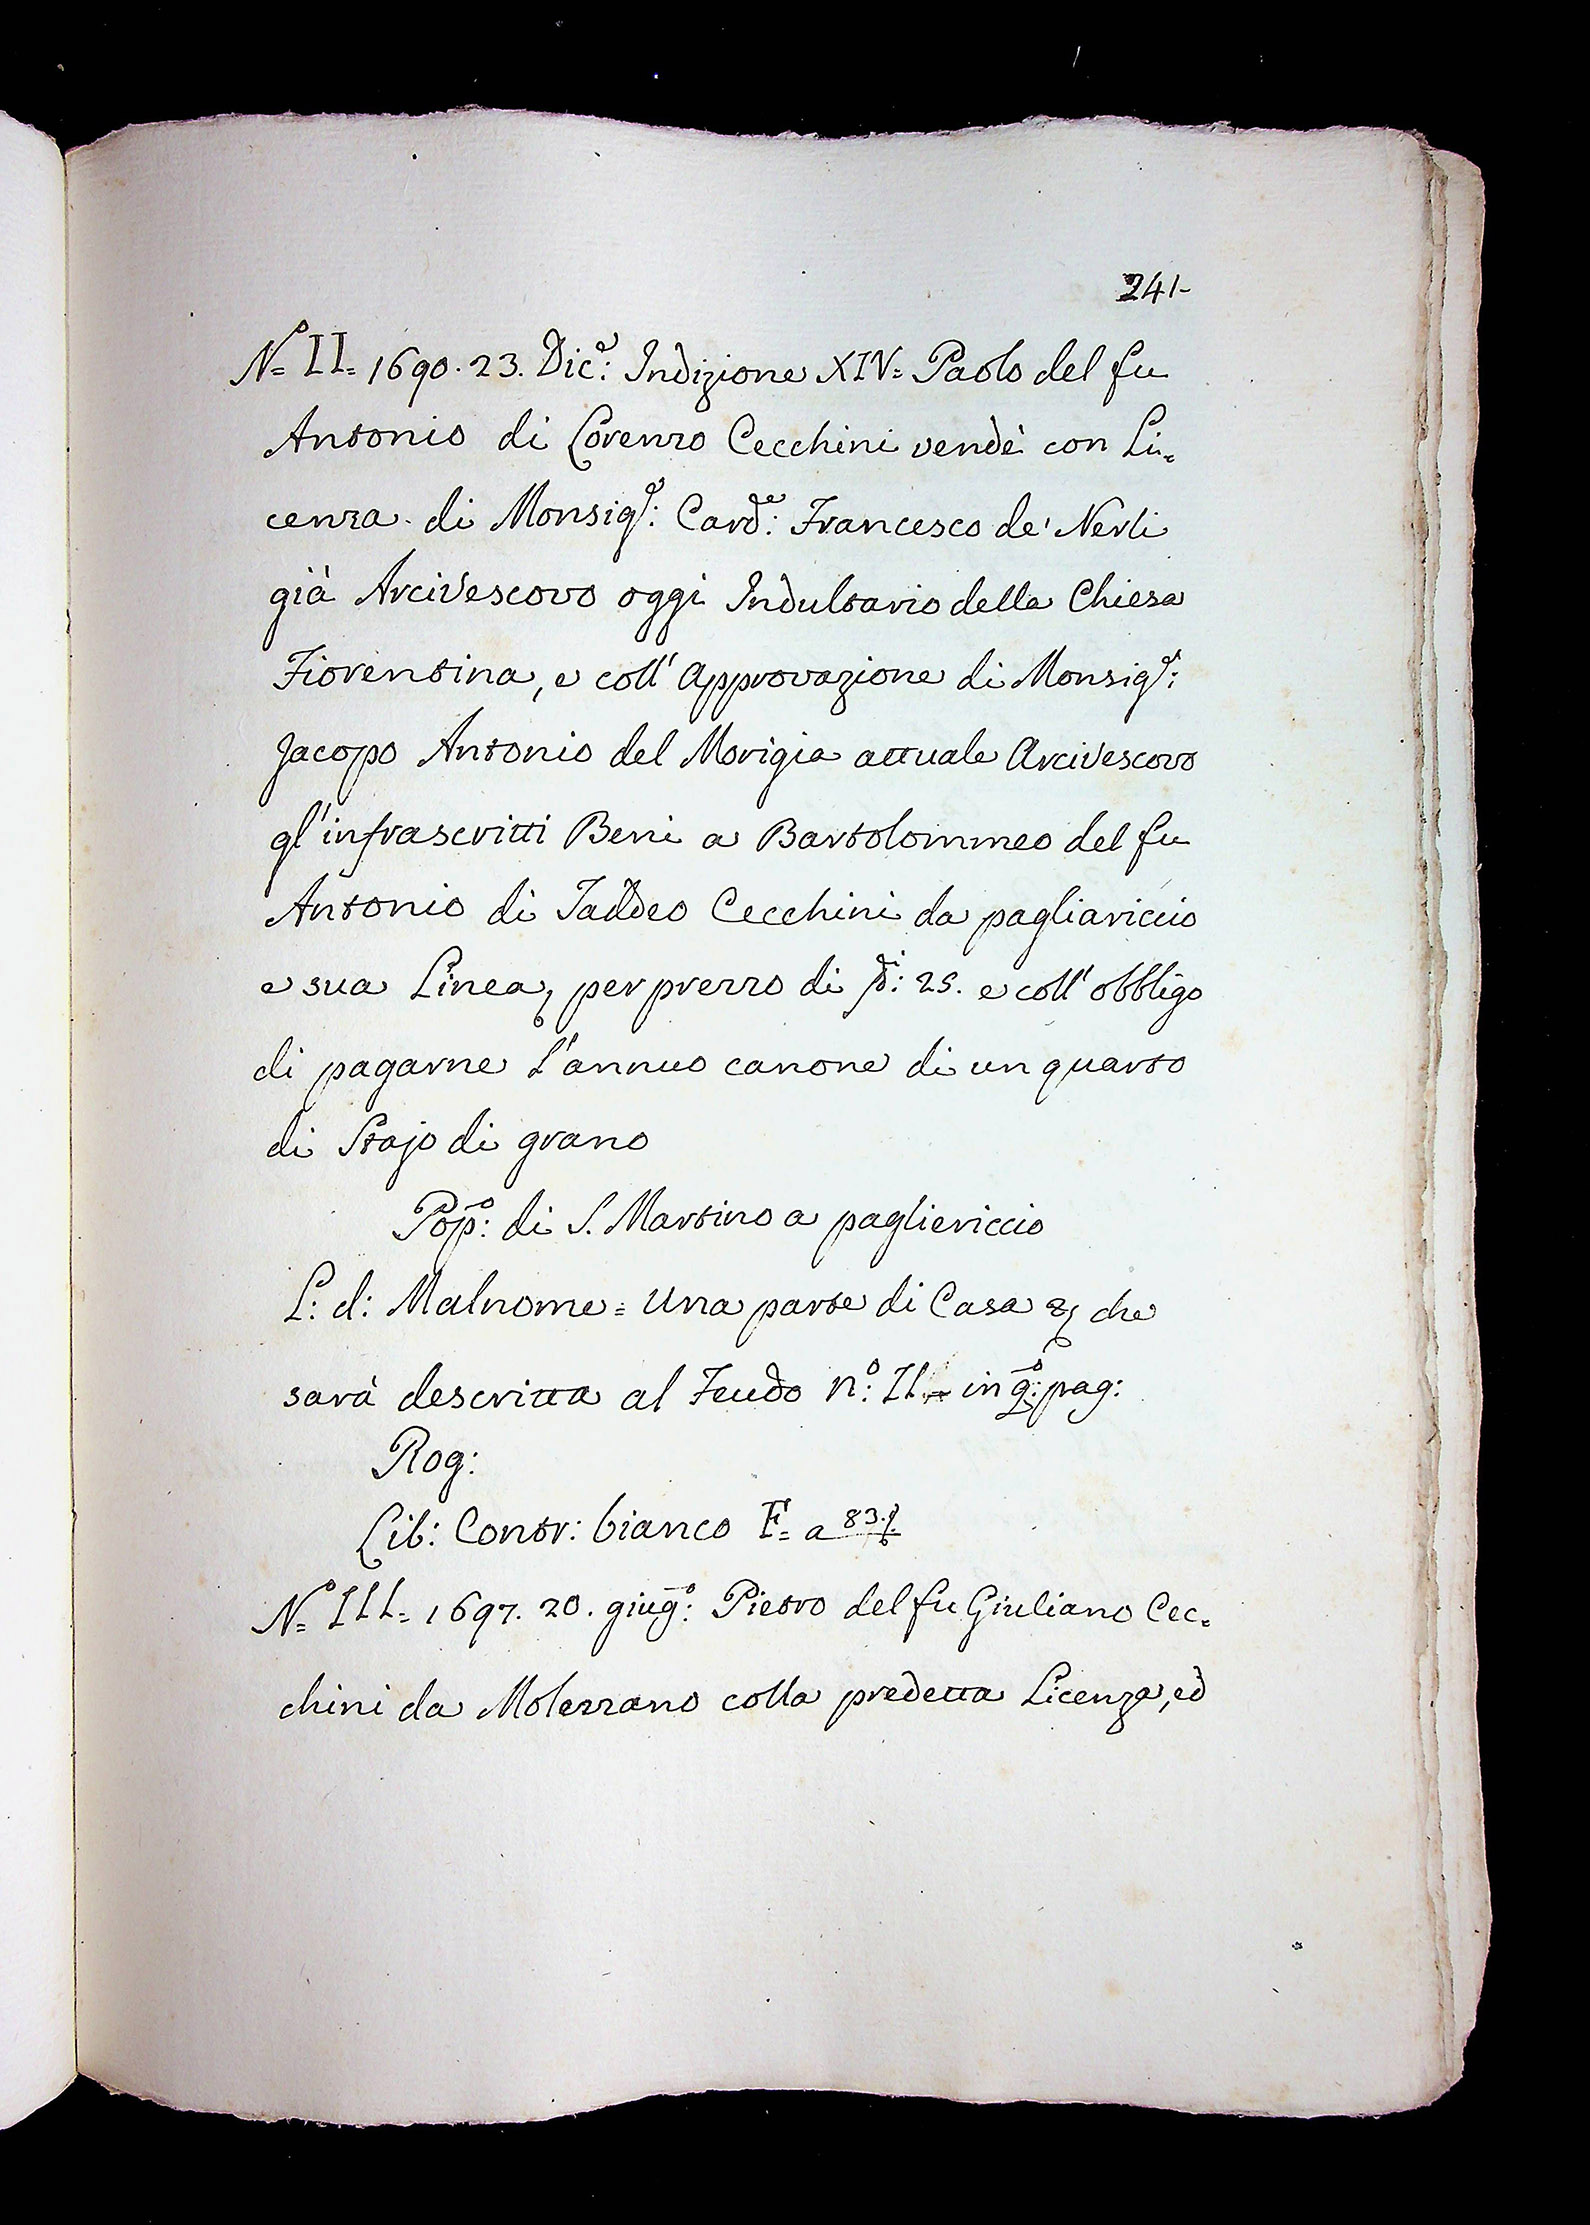 241-
N.º II= 1690. 23. Dic.e: Indizione XIV= Paolo del fu
Antonio di Lorenzo Cecchini vendè con Li=
cenza di Monsig.r: Card.e: Francesco de' Nerli
già Arcivescovo oggi Indultario della Chiesa
Fiorentina, e coll' Approvazione di Monsig.r:
Jacopo Antonio del Morigia attuale Arcivescovo
gl'infrascritti Beni a Bartolommeo del fu
Antonio di Taddeo Cecchini da pagliariccio
e sua Linea, per prezzo di 25. e coll' obbligo
di pagarne l'annuo canone di un quarto
di Stajo di grano
Pop.o: di S. Martino a pagliericcio
L: d: Malnome= Una parte di Casa & che
sarà descritta al Feudo n.º: II in q.o: pag:
Rog:
Lib: Contr: bianco F= a 83.
N.º III= 1697. 20. giug.o: Pietro del fu Giuliano Cec=
chini da Molezzano colla predetta Licenza, ed